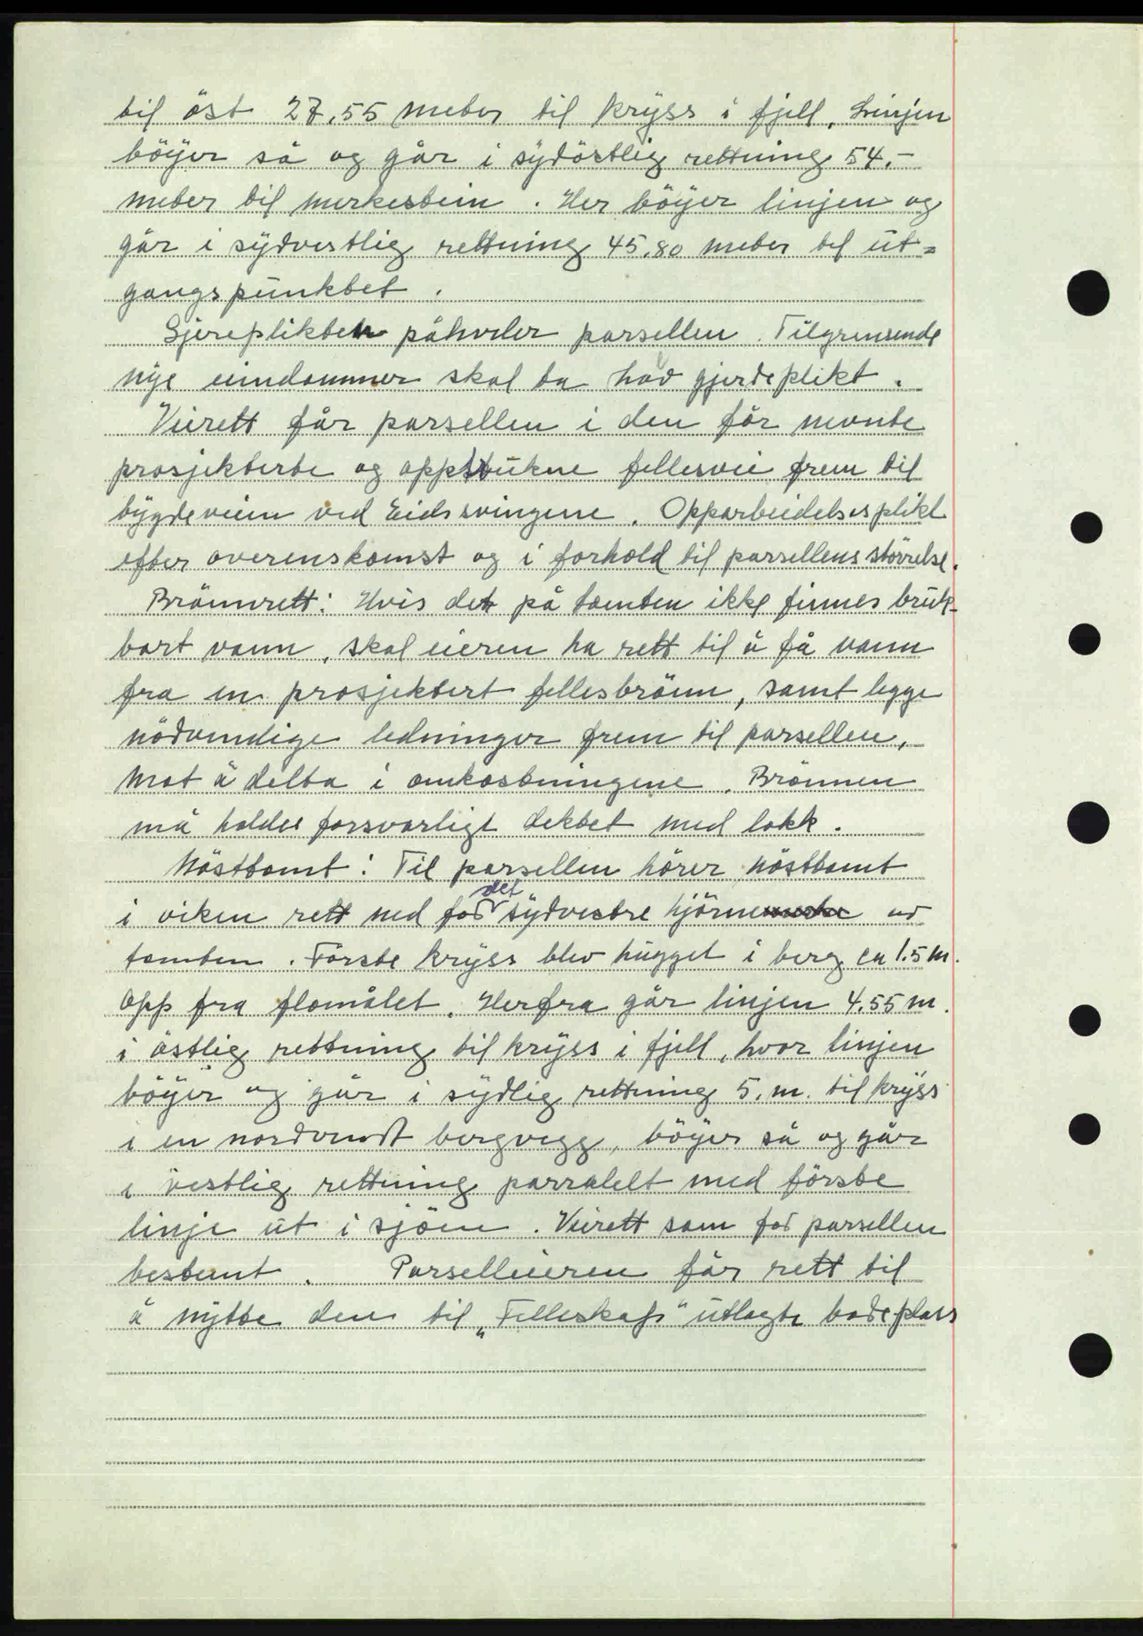 til öst 27,55 meter til kryss i fjell. Linjen
böyer så og går i sydöstlig rettning 54.-
meter til merkestein. Her böyer linjen og
går i sydvestlig rettning 45.80 meter til ut=
gangspunktet.
Gjereplikten påhviler parsellen. Tilgrensende
nye eiendommer skal ta halv gjerdeplikt.
Veirett får parsellen i den för nevnte
prosjekterte og oppstukne fellesvei frem til
bygdeveien ved Eidssvingene. Opparbeidelsesplikt
efter overenskomst og i forhold til parsellens störrelse.
Brönnrett: Hvis det på tomten ikke finnes bruk-
bart vann, skal eieren ha rett til å få vann
fra en prosjektert fellesbrönn, samt legge
nödvendige ledninger frem til parsellen,
mot å delta i omkostningene. Brönnen
må holdes forsvarligt dekket med lokk.
Nösttomt: Til parsellen hörer nösttomt
i viken rett ned for det sydvestre hjörne av
tomten. Förste kryss blev hugget i berg ca 1.5 m.
opp fra flomålet. Herfra går linjen 4.55 m.
i östlig rettning til kryss i fjell, hvor linjen
böyer og går i sydlig rettning 5. m. til kryss
i en nordvendt bergvegg, böyer så og går
i vestlig rettning parralelt med förste
linje ut i sjöen. Veirett som for parsellen
bestemt. Parselleieren får rett til
å nytte den til "Felleskap" utlagte badeplass